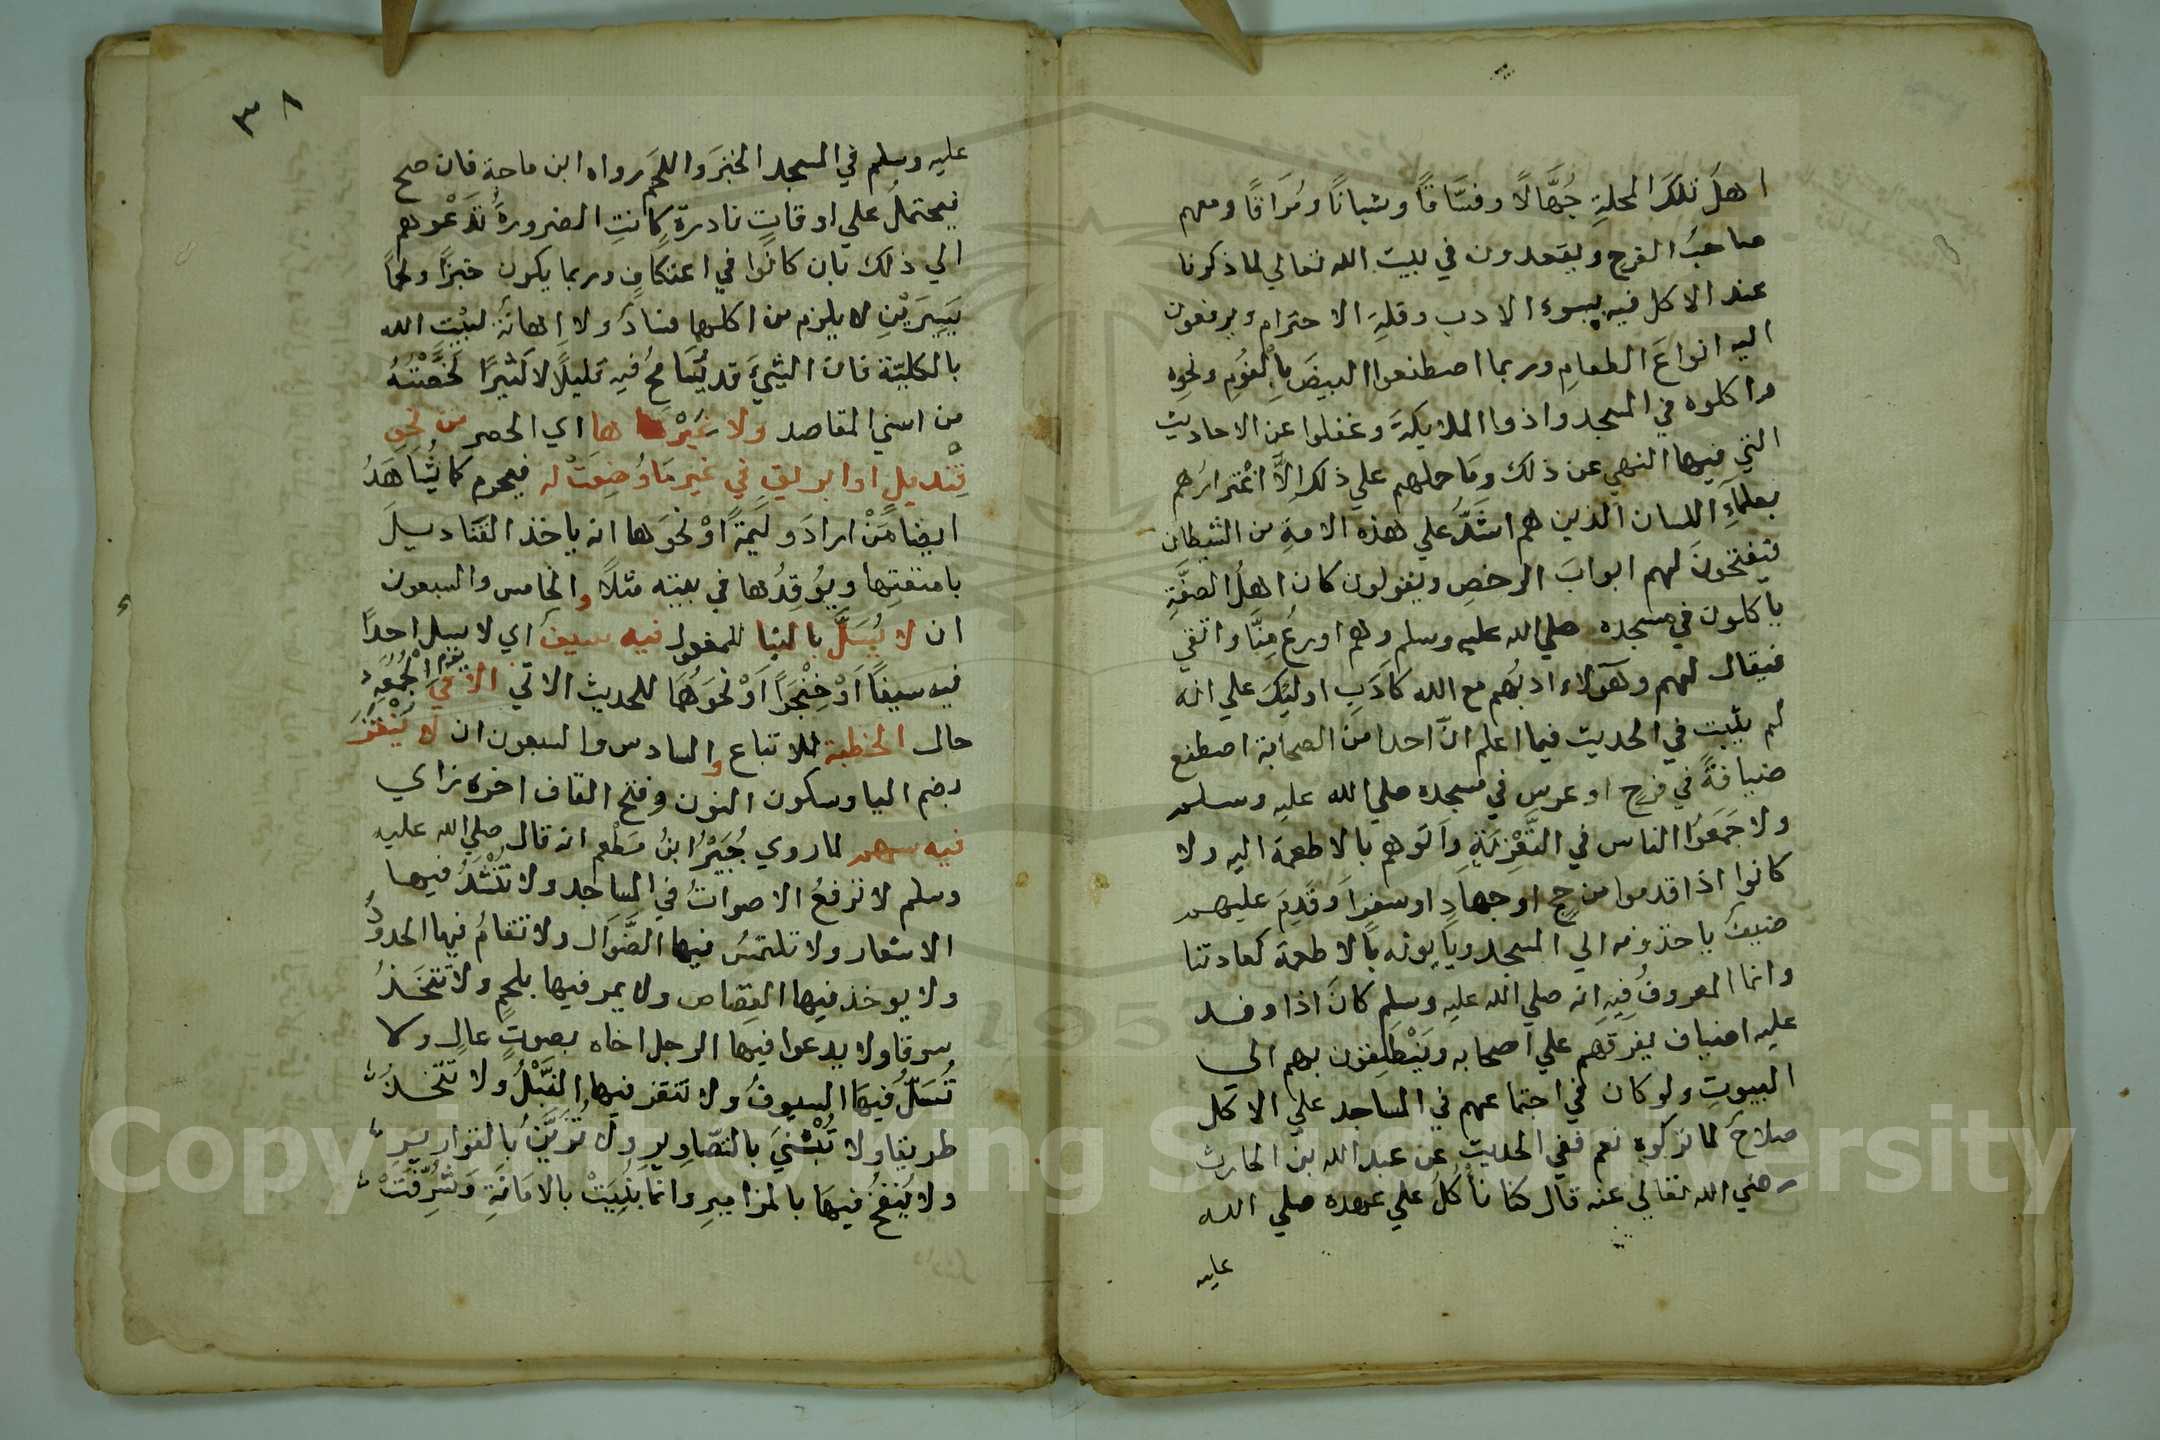 اهلَ تلكَ المحلةِ جُهَّالًا وفسَّاقًا وشبانًا ومُرَاقًا ومعهم
صاحبُ الفرح ويقعدون في بيت الله تعالي لما ذكرنا
عند الاكل فيه بسوء الادب وقلةِ الاحترام ويرفعون
اليه انواعَ الطعامِ وربما اصطنعوا البيضَ بالثومِ ونحوِه
واكلوه في المسجد واذوا الملايكةَ وغفلوا عن الاحاديث
التي فيها النهي عن ذلك وما حملهم علي ذلك اِلَّا اغْترارُهم
بعلمآءِ اللسان الذين هم اشَدُّ علي هذه الامةِ من الشيطان
فيفتحونَ لهم ابوابَ الرخصِ ويقولون كان اهلُ الصفَّةِ
ياكلون في مسجده صلي الله عليه وسلم وهم اورعُ مِنَّا واتقي
فيقال لهم وهَؤلاء ادبُهم مع الله كادَبِ اوليكَ علي انه
لم يثبت في الحديث فيما اعلم انّ احدا من الصحابة اصطنع
ضيافةً في فرحٍ او عرسٍ في مسجده صلي الله عليه وسلم
ولا جَمَعَوُا الناس في التَّعْزِيَةِ وَاَتَوهم بالاطعمة اليه ولا
كانوا اذا قدموا من حج او جهادٍ او سفرٍ اَو قَدِمَ عليهم
ضيفٌ ياخذونه الي المسجد وياتونه بالاطعمة كعادتنا
وانما المعروفُ فيه انه صلي الله عليه وسلم كانَ اذا وفد
عليه اضياف يفرقهم علي اصحابه ويَنْطلِقون بهم الي
البيوتِ ولو كان في اجتماعهم في المساجد علي الاكل
صلاحٌ لما تركوه نعم ففي الحديث عن عبد الله بن الحارث
رضي الله تعالي عنه قال كنا نأكلُ علي عهده صلي الله
عليه
٣٨
عليه وسلم في المسجد الخبزَ واللحمَ رواه ابن ماجة فان صح
فيحتملُ علي اوقاتٍ نادرةٍ كانتِ الضرورةُ تَدْعُوهم
الي ذلك بان كانوا في اعتكافٍ وربما يكون خبزًا ولحمًا
يَسِيرَيْنِ لا يلزم من اكلهما فسادٌ ولا اِهانةٌ لبيْتِ الله
بالكليّة فان الشيَ قد يُتَسَامحُ فيه قليلًا لا كثيرًا لخَفَّتُهُ
من اسني المقاصد ولا غَيْرْ ها اي الحصر من نحوِ
قِنْديلٍ او ابريقٍ في غيرِ مَا وُضِعَتْ له فيحرم كما يُشَاهَدُ
ايضا مَنْ ارادَ وليَمةً اوْ نحْوَها انه ياخذ القنَاديلَ
بامتعتِها ويُوقِدُها في بيته مثلًا والخامس والسبعون
ان لا يُسَلَّ بالبنا للمفعول فيه سيف اي لا يسل احدًا
فيه سيفًا اَوْ خِنْجَرًا اَوْ نحْوَهُمَا للحديث الاتي الا في يَوْمِ الْجُمُعَةِ
حال الخطبة للاتباع والسادس والسبعون ان لا يُنْقَزَ
بضم اليا وسكون النون وفتح القاف اخره زاي
فيه سهم لما روي جُبَيْرُ ابنُ مَطْعِم انه قال صلي الله عليه
وسلم لا ترفعُ الاصواتُ في المساجد ولا تُنْشَدُ فيها
الاشعار ولا تلتمَسُ فيها الضَّوَال ولا تقامُ فيها الحدودُ
ولا يوخذ فيها القِصَاص ولا يمر فيها بلحمٍ ولا تتخَذُ
سوقا ولا يدعوا فيها الرجل اخاه بصوتٍ عالٍ ولا
تُسَلُّ فيها السيوفُ ولا تنقز فيها النَّبْلُ ولا تتّخذُ
طريقا ولا تُبْنيَ بالتصَاوِيرِ ولا تُزَيَّنُ بالقواريرِ
ولا يُنْفَخُ فيهَا بالمزاميرِ وانما بُنِيَتْ بالامَانَةِ وَشُرّفَتْ
Copyright © King Saud University
195